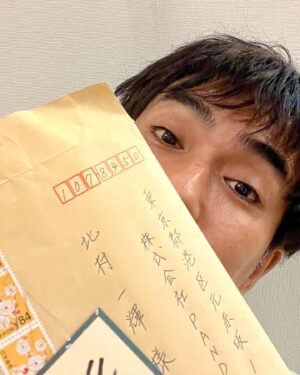 1078450
東京都港区元赤坂
株式会社PAND
北村一輝
84